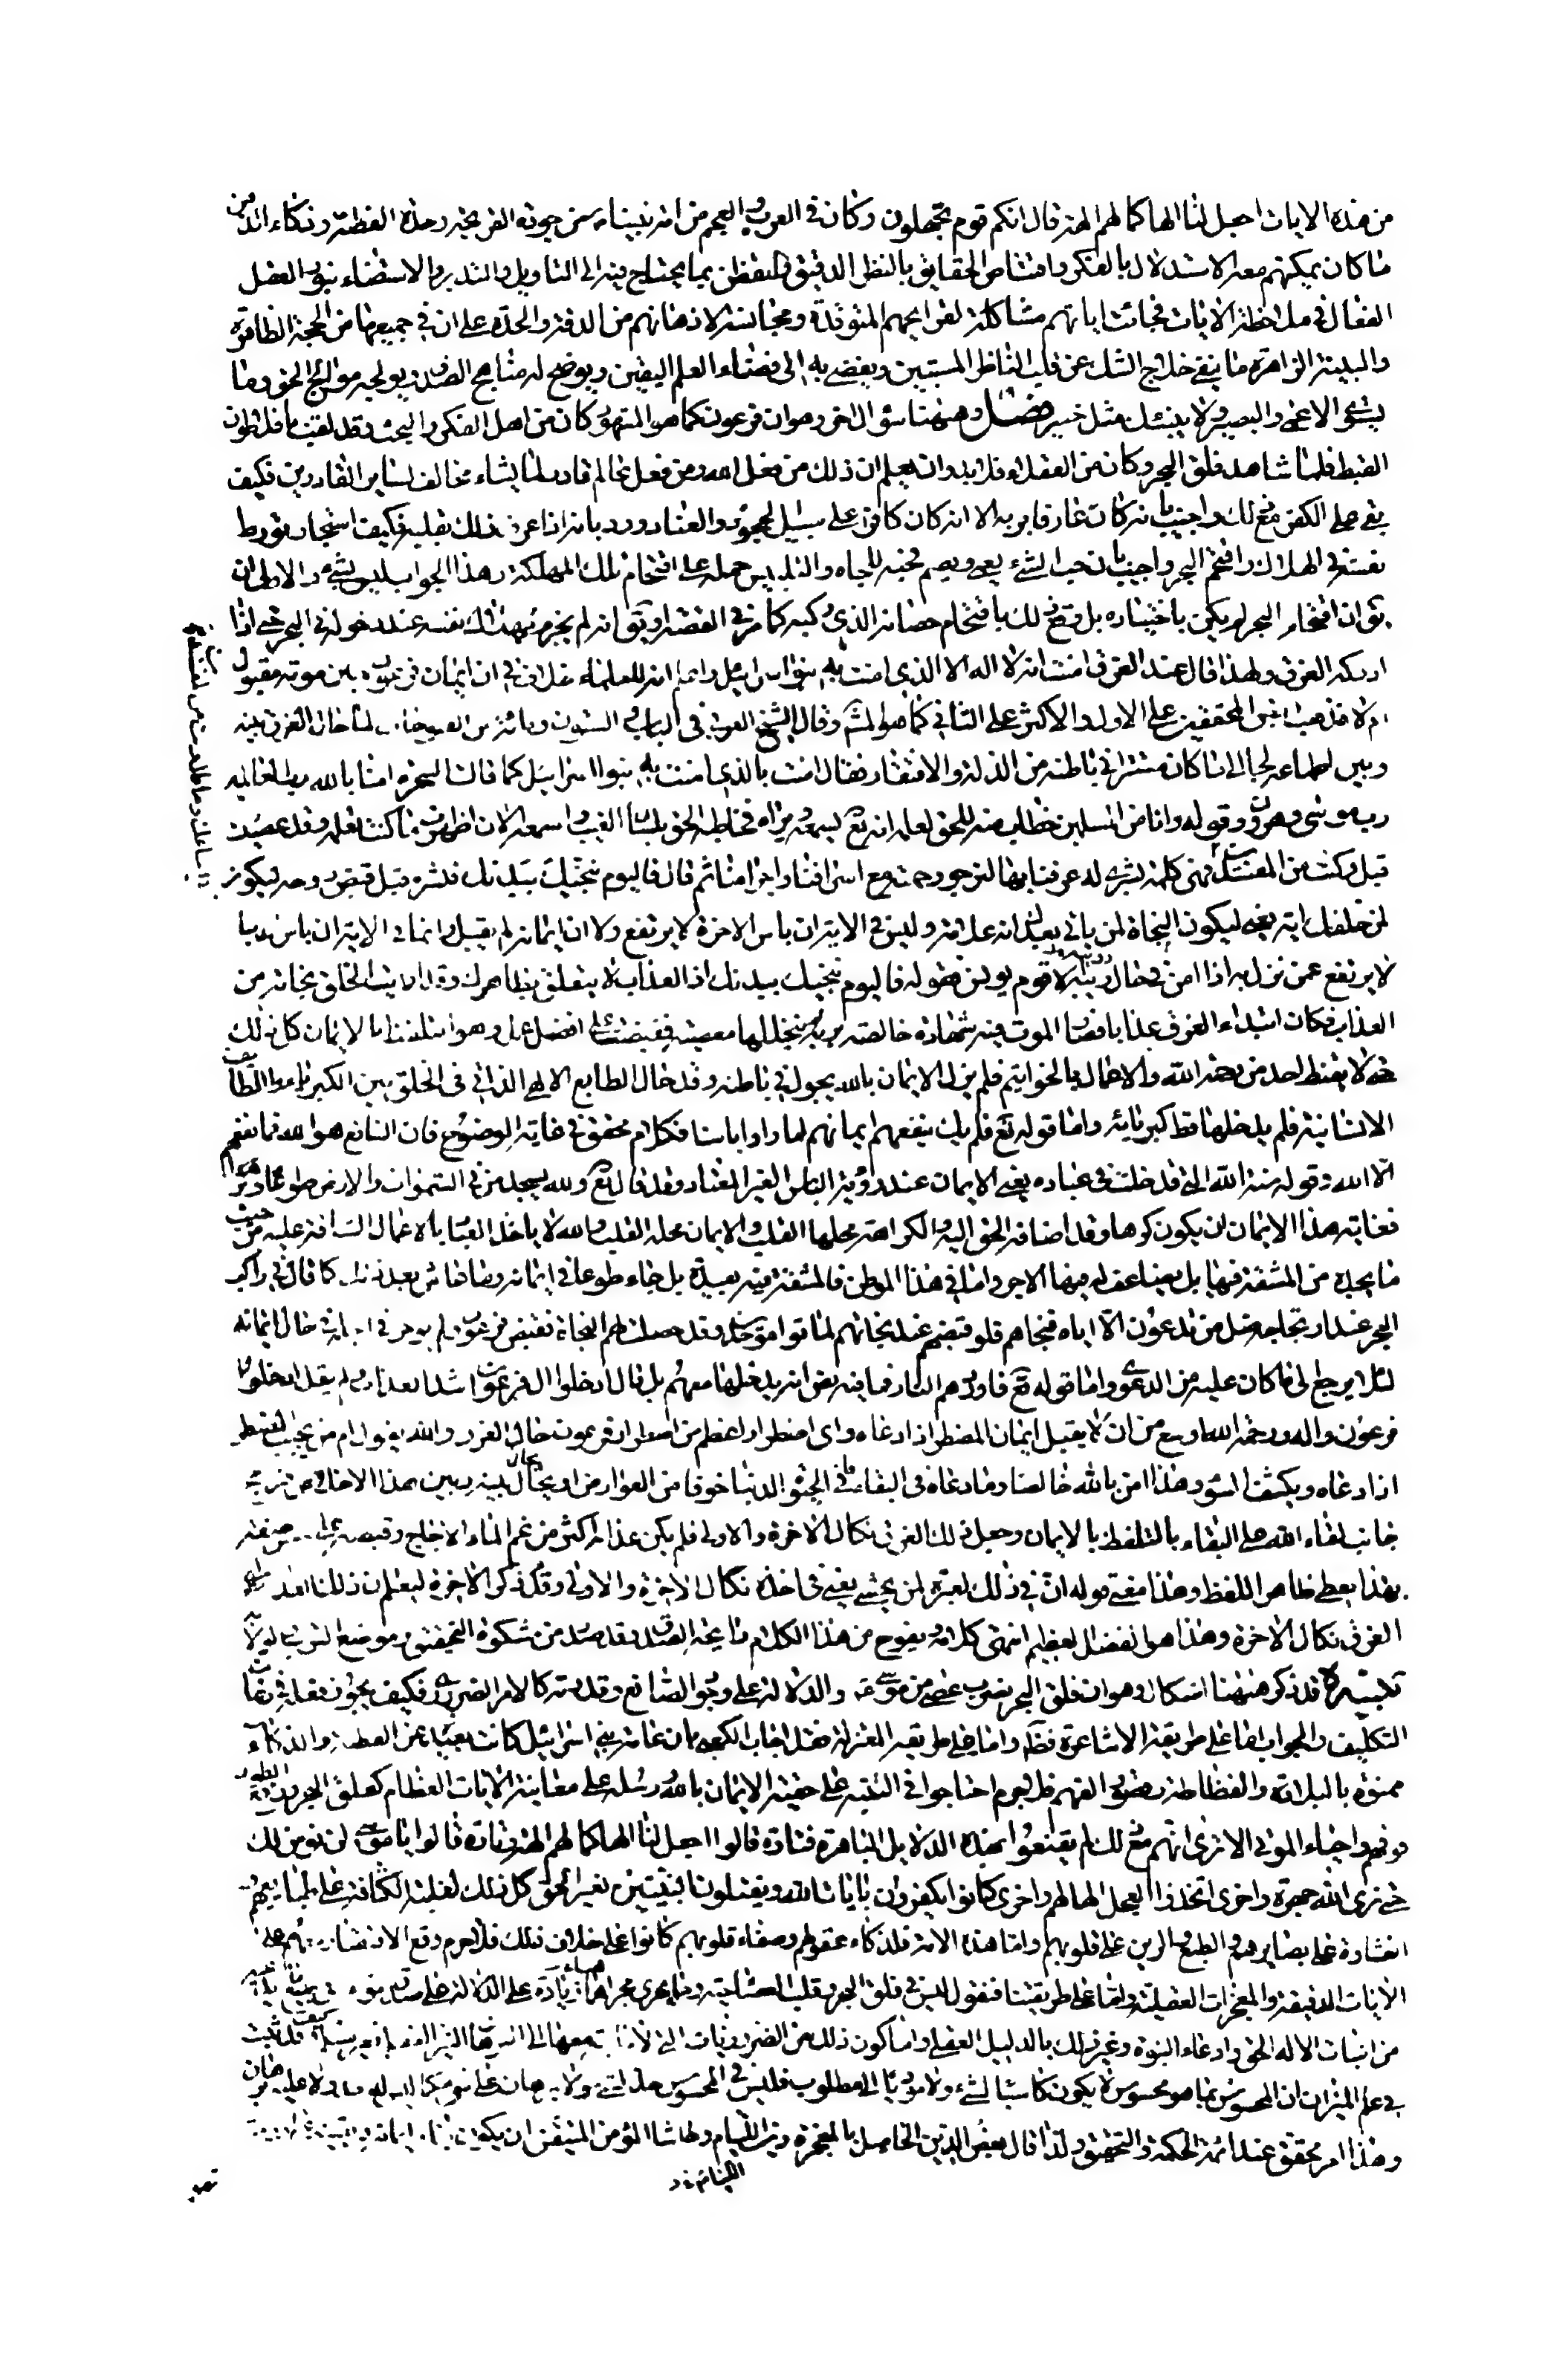 من هذه الايات اجعل لنا الها كما لهم الهة قال انكم قوم تجهلون وكان في العرب والعجم من امة نبينا من جودة القريحة وحدة الفطنة وذكاء الذهن
ما كان يمكنهم معه الاستدلال بالفكر واقتناص الحقايق بالنظر الدقيق والتفطن بما يحتاج فيه الى التاويل والتدبر والاستضاء بنور العقل
الفعال في ملاحظة الايات فجائت اياتهم مشاكلة لقرايحهم المتوقدة ومجانسة لاذهانهم من الدقة والحدة على ان في جميعها من الحجة الظاهرة
والبينة الزاهرة ما ينفي خلاج الشك عن قلب الناظر المستبين ويفضي به الى فضاء العلم اليقين ويوضح له مناهج الصدق ويولجه موالج الحق وما
يستوي الاعمى والبصير ولا ينبئك مثل خبير فصل وهيهنا سؤال اخر وهو ان فرعون كما هو المشهور كان من اهل الفكر والبحث وقد لقب بافلاطون
القبط فلما شاهد فلق البحر وكان من العقلاء فلا بد وان يعلم ان ذلك من فعل الله ومن فعل عالم قادر لما يشاء مخالف لساير القادرين فكيف
بقي على الكفر مع ذلك واجيب بانه كان عارفا بربه الا انه كان كافرا على سبيل الجحود والعناد ورد بانه اذا عرف ذلك بقلبه فكيف استجار تورط
نفسه في الهلاك واقتحم البحر واجيب بان حب الشيء يعمي ويصم فحبه للجاه والتلبيس حمله على اقتحام تلك المهلكة وهذا الجواب ليس بشيء والاولى ان
يق ان اقتحام البحر لم يكن باختياره بل وقع ذلك باقتحام حصانه الذي ركبه كما مر في القصة او يق انه لم يجزم بهذا ذلك نفسه عند دخوله في البحر حتى اذا
ادركه الغرق ولهذا قال عند الغرق امنت انه لا اله الا الذي امنت به بنوا اسرائيل واعلم انه للعلماء خلاف في ان ايمان فرعون حين موته مقبول
ام لا فذهب بعض المحققين على الاول والاكثر على الثاني كما هو المش وقال الشيخ العربي في الباب السبعون ومائة من الفتوحات لما حال الغرق بينه
وبين اطماعه لجا الى ما كان مستترا في باطنه من الذلة والافتقار فقال امنت بالذي امنت به بنوا اسرائيل كما قالت السحرة امنا بالله رب العالمين
رب موسى وهرون وقوله وانا من المسلمين خطاب منه للحق لعلمه انه تع يسمعه ويراه فخاطبه الحق بلسان الغيب واسمعه الان اظهرت ما كنت تعلمه وقد عصيت
قبل وكنت من المفسدين فهي كلمة بشرى له عرفنا بها لنرجو رحمته مع اسرافنا واجرامنا ثم قال فاليوم ننجيك ببدنك فبشره قبل قبض روحه ليكون
لمن خلفك اية يعني ليكون النجاة لمن ياتي بعدك اية علامة وليس في الاية ان باس الاخرة لا يرتفع ولا ان ايمانه لم يقبل وانما في الاية ان باس الدنيا
لا يرتفع عمن نزل به اذا امن في حال رؤيته الا قوم يونس فقوله فاليوم ننجيك ببدنك اذ العذاب لا يتعلق بظاهرك وقد رايت الخلق نجاته من
العذاب فكان ابتداء الغرق عذابا فصار الموت فيه شهادة خالصة بريئة لم يتخللها معصية فقبضت على افضل عمل وهو التلفظ بالايمان كل ذلك
حتى لا يقنط احد من رحمة الله والاعمال بالخواتيم فلم يزل الايمان بالله يجول في باطنه وقد حال الطابع الالهي الذاتي في الخلق بين الكبرياء واللطائف
الانسانية فلم يدخلها قط كبرياء واما قوله تع فلم يك ينفعهم ايمانهم لما راوا باسنا فكلام محقق في غاية الوضوح فان النافع هو الله فما نفعهم
الا الله وقوله سنة الله التي قد خلت في عباده يعني الايمان عند رؤية الباس الغير المعتاد وقد قال تع ولله يسجد من في السموات والارض طوعا وكرها
فغاية هذا الايمان ان يكون كرها وقد اضافه الحق اليه والكراهة محلها القلب والايمان محله القلب والله لا ياخذ العباد بالاعمال الشاقة عليه من حيث
ما يجده من المشقة فيها بل يضاعف له فيها الاجر واما في هذا الموطن فالمشقة منه بعيدة بل جاء طوعا في ايمانه وما عاش بعد ذلك كما قال في راكب
البحر عند ارتجاجه ضل من تدعون الا اياه فنجاهم فلو قبضهم عند نجاتهم لماتوا موحدين وقد حصلت لهم النجاة فقبض فرعون ولم يؤخر في اجله في حال ايمانه
لئلا يرجع الى ما كان عليه من الدعوى واما قوله تع فاوردهم النار فما فيه نص انه يدخلها معهم بل قال ادخلوا ال فرعون اشد العذاب ولم يقل ادخلوا
فرعون واله ورحمة الله اوسع من ان لا يقبل ايمان المضطر اذا دعاه واي اضطرار اعظم من اضطرار فرعون حال الغرق والله يقول ام من يجيب المضطر
اذا دعاه ويكشف السوء وهذا امن بالله خالصا وما دعاه في البقاء في الحيوة الدنيا خوفا من العوارض او يحال بينه وبين هذا الاخلاص فرجح
جانب لقاء الله على البقاء بالتلفظ بالايمان وجعل ذلك الغرق نكال الاخرة والاولى فلم يكن عذابه اكثر من غم الماء الاجاج وقبضه على احسن صفة
هذا يعطي ظاهر اللفظ وهذا معنى قوله ان في ذلك لعبرة لمن يخشى يعني في اخذه نكال الاخرة والاولى وقدم ذكر الاخرة ليعلم ان ذلك العذاب
الغرق نكال الاخرة وهذا هو الفضل العظيم انتهى كلامه ويفوح من هذا الكلام رايحة الصدق وقد صدر من مشكوة التحقيق وموضع القرب والولاية
تنبيه قد ذكر هيهنا اشكال وهو ان فلق البحر بضرب عصى من موسى ع والدلالة على وجود الصانع وقدرته كالامر الضروري فكيف يجوز فعله في زمان
التكليف والجواب اما على طريقة الاشاعرة فظ واما على طريقة المعتزلة فقد اجاب الكعبي بان عامة بني اسرائيل كانت بعيدا عن الفطنة والذكاء
ممنوة بالبلادة والفظاظة وضعف الفهم فلا جرم احتاجوا في التنبيه على حقية الايمان بالله ورسله على معاينة الايات العظام كفلق البحر ورفع الطور
فوقهم واحياء الموتى الا ترى انهم مع ذلك لم يقنعوا بهذه الدلايل الباهرة فتارة قالوا اجعل لنا الها كما لهم الهة وتارة قالوا يا موسى لن نؤمن لك
حتى نرى الله جهرة واخرى اتخذوا العجل الها لهم واخرى كانوا يكفرون بايات الله ويقتلون النبيين بغير الحق كل ذلك لغلبة الكثافة على طبايعهم
الغشاوة على بصايرهم والطبع والرين على قلوبهم واما هذه الامة فلذكاء عقولهم وصفاء قلوبهم كانوا على خلاف ذلك فلا جرم وقع الاقتصار بهم على
الايات الدقيقة والمعجزات العقلية واما على طريقتنا فنقول ليس في فلق البحر وقلب العصا حية وما يجري مجراهما زيادة على الدلالة على صدق
من اثبات الاله الحق وادعاء النبوة وغير ذلك بالدليل العقلي واما كون ذلك من الضروريات التي لا
في علم الميزان ان المحسوس بما هو محسوس لا يكون كاسبا لشيء ولا مؤديا الى المطلوب فليس في المحسوس حد لشيء ولا برهان على شيء
وهذا امر محقق عند ائمة الحكمة والتحقيق ولذا قال بعض الدين الحاصل بالمعجزة دين اللئام وحاشا المؤمن المتيقن ان يكون